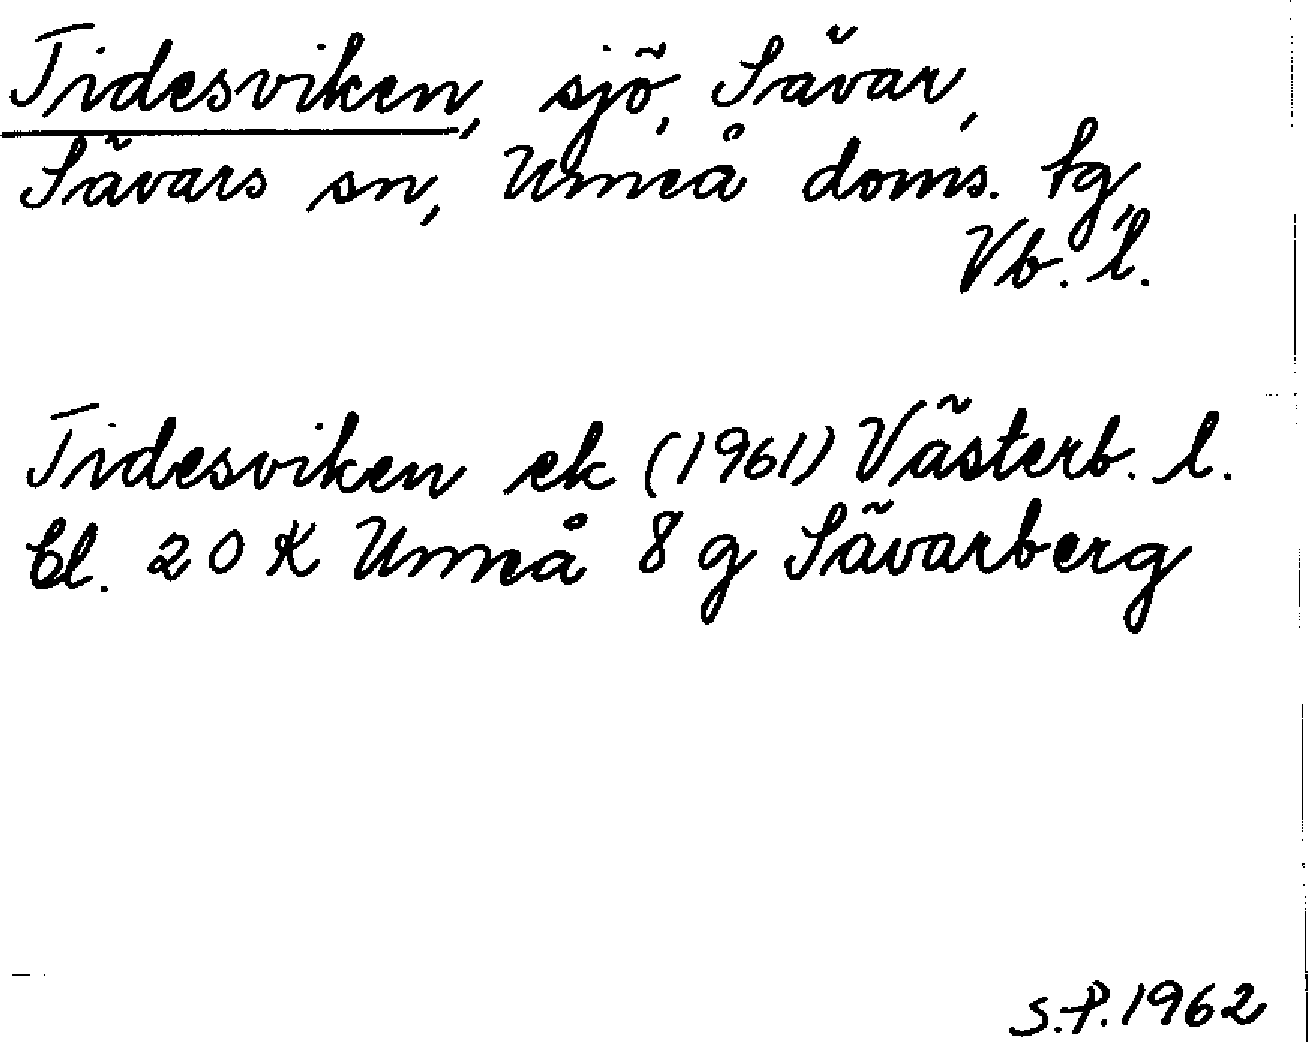 Tidesviken, sjö, Sävar,
Sävars sn, Umeå doms. tg,
Vb. l.
Tidesviken ek (1961) Västerb. l.
bl. 20 K Umeå 8 g Sävarberg
S.P. 1962